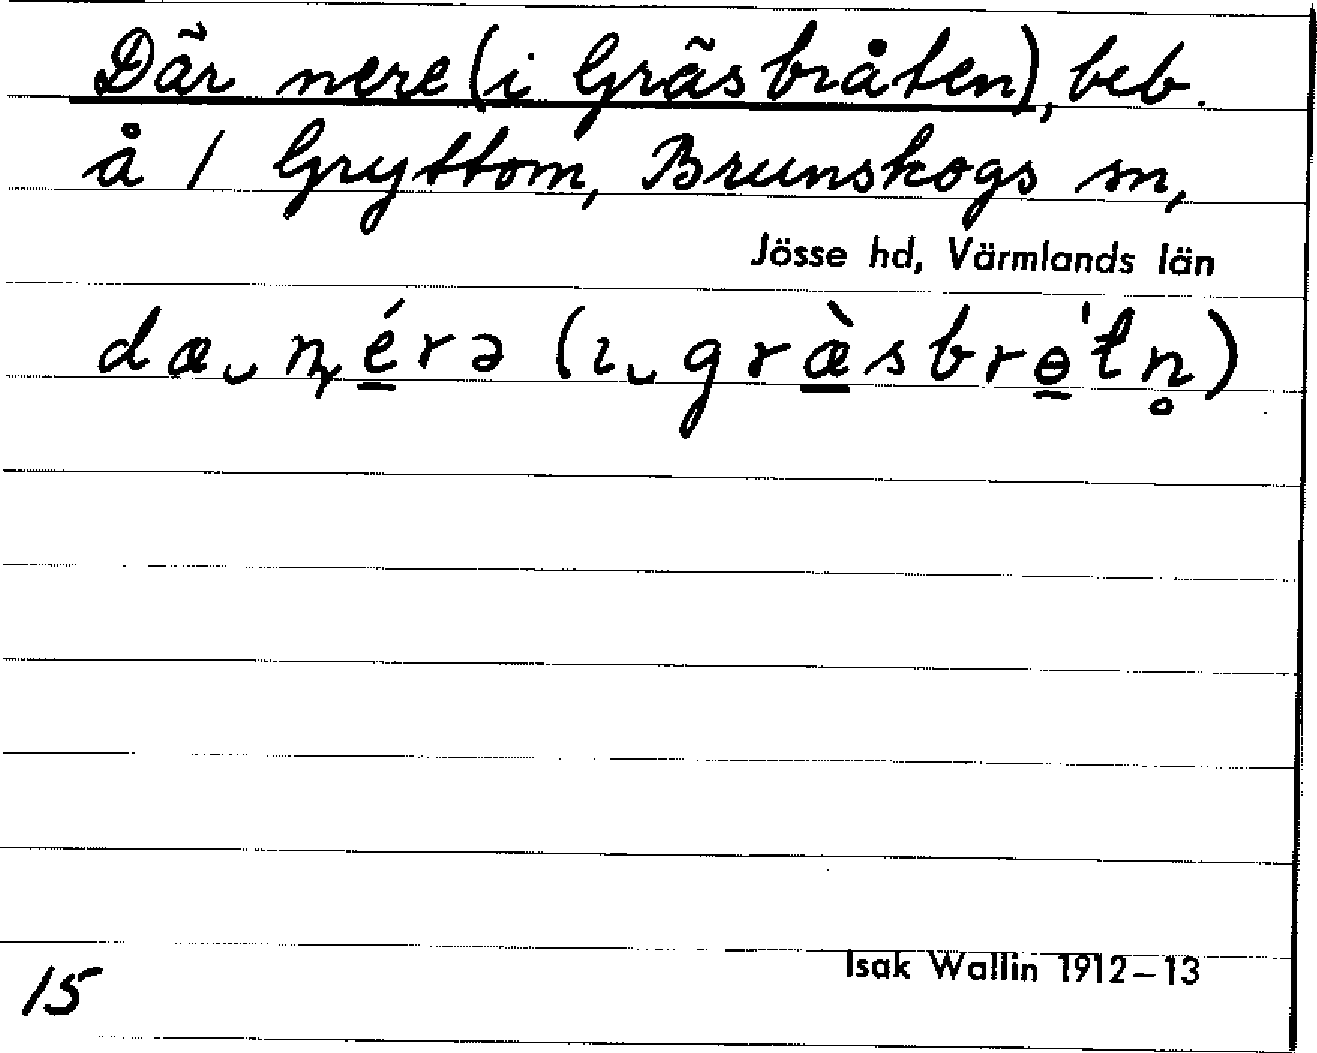 Där nere (i Gräsbråten), beb.
å 1 Gryttom, Brunskogs sn,
Jösse hd, Värmlands län
dæ‿ɳérə (ɩ‿græ̀sbrɵ̍tn̥)
15
Isak Wallin 1912–13